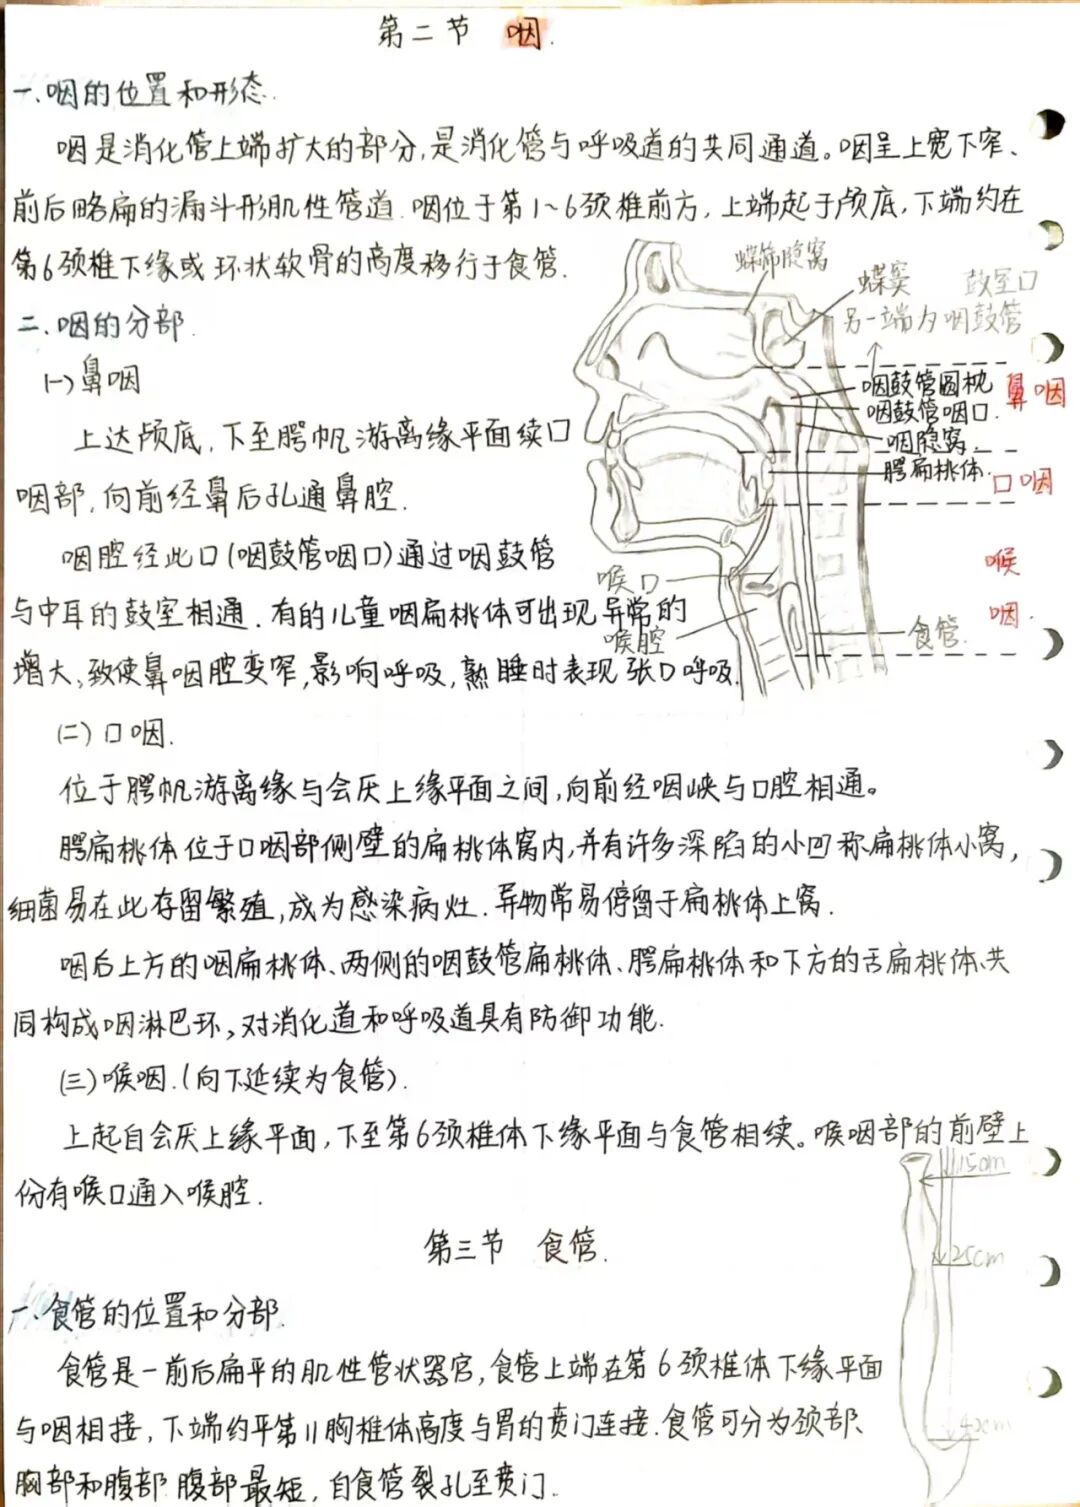 第二节 咽.
一.咽的位置和形态.
咽是消化管上端扩大的部分,是消化管与呼吸道的共同通道。咽呈上宽下窄、
前后略扁的漏斗形肌性管道.咽位于第1~6颈椎前方,上端起于颅底,下端约在
第6颈椎下缘或环状软骨的高度移行于食管.
蝶筛隐窝
蝶窦
鼓室口
另一端为咽鼓管
二.咽的分部.
(一)鼻咽
咽鼓管圆枕
鼻咽
咽鼓管咽口.
咽隐窝.
腭扁桃体.
口咽
上达颅底,下至腭帆游离缘平面续口
咽部,向前经鼻后孔通鼻腔.
咽腔经此口(咽鼓管咽口)通过咽鼓管
喉口
喉
咽.
与中耳的鼓室相通.有的儿童咽扁桃体可出现异常的
喉腔
食管.
增大,致使鼻咽腔变窄,影响呼吸,熟睡时表现张口呼吸.
(二)口咽.
位于腭帆游离缘与会厌上缘平面之间,向前经咽峡与口腔相通。
腭扁桃体位于口咽部侧壁的扁桃体窝内,并有许多深陷的小凹称扁桃体小窝,
细菌易在此存留繁殖,成为感染病灶.异物常易停留于扁桃体上窝.
咽后上方的咽扁桃体、两侧的咽鼓管扁桃体、腭扁桃体和下方的舌扁桃体、共
同构成咽淋巴环,对消化道和呼吸道具有防御功能.
(三)喉咽.(向下延续为食管).
上起自会厌上缘平面,下至第6颈椎体下缘平面与食管相续。喉咽部的前壁上
份有喉口通入喉腔.
15cm
25cm
40cm
第三节 食管.
一.食管的位置和分部.
食管是一前后扁平的肌性管状器官,食管上端在第6颈椎体下缘平面
与咽相接,下端约平第11胸椎体高度与胃的贲门连接.食管可分为颈部、
胸部和腹部 腹部最短,自食管裂孔至贲门.